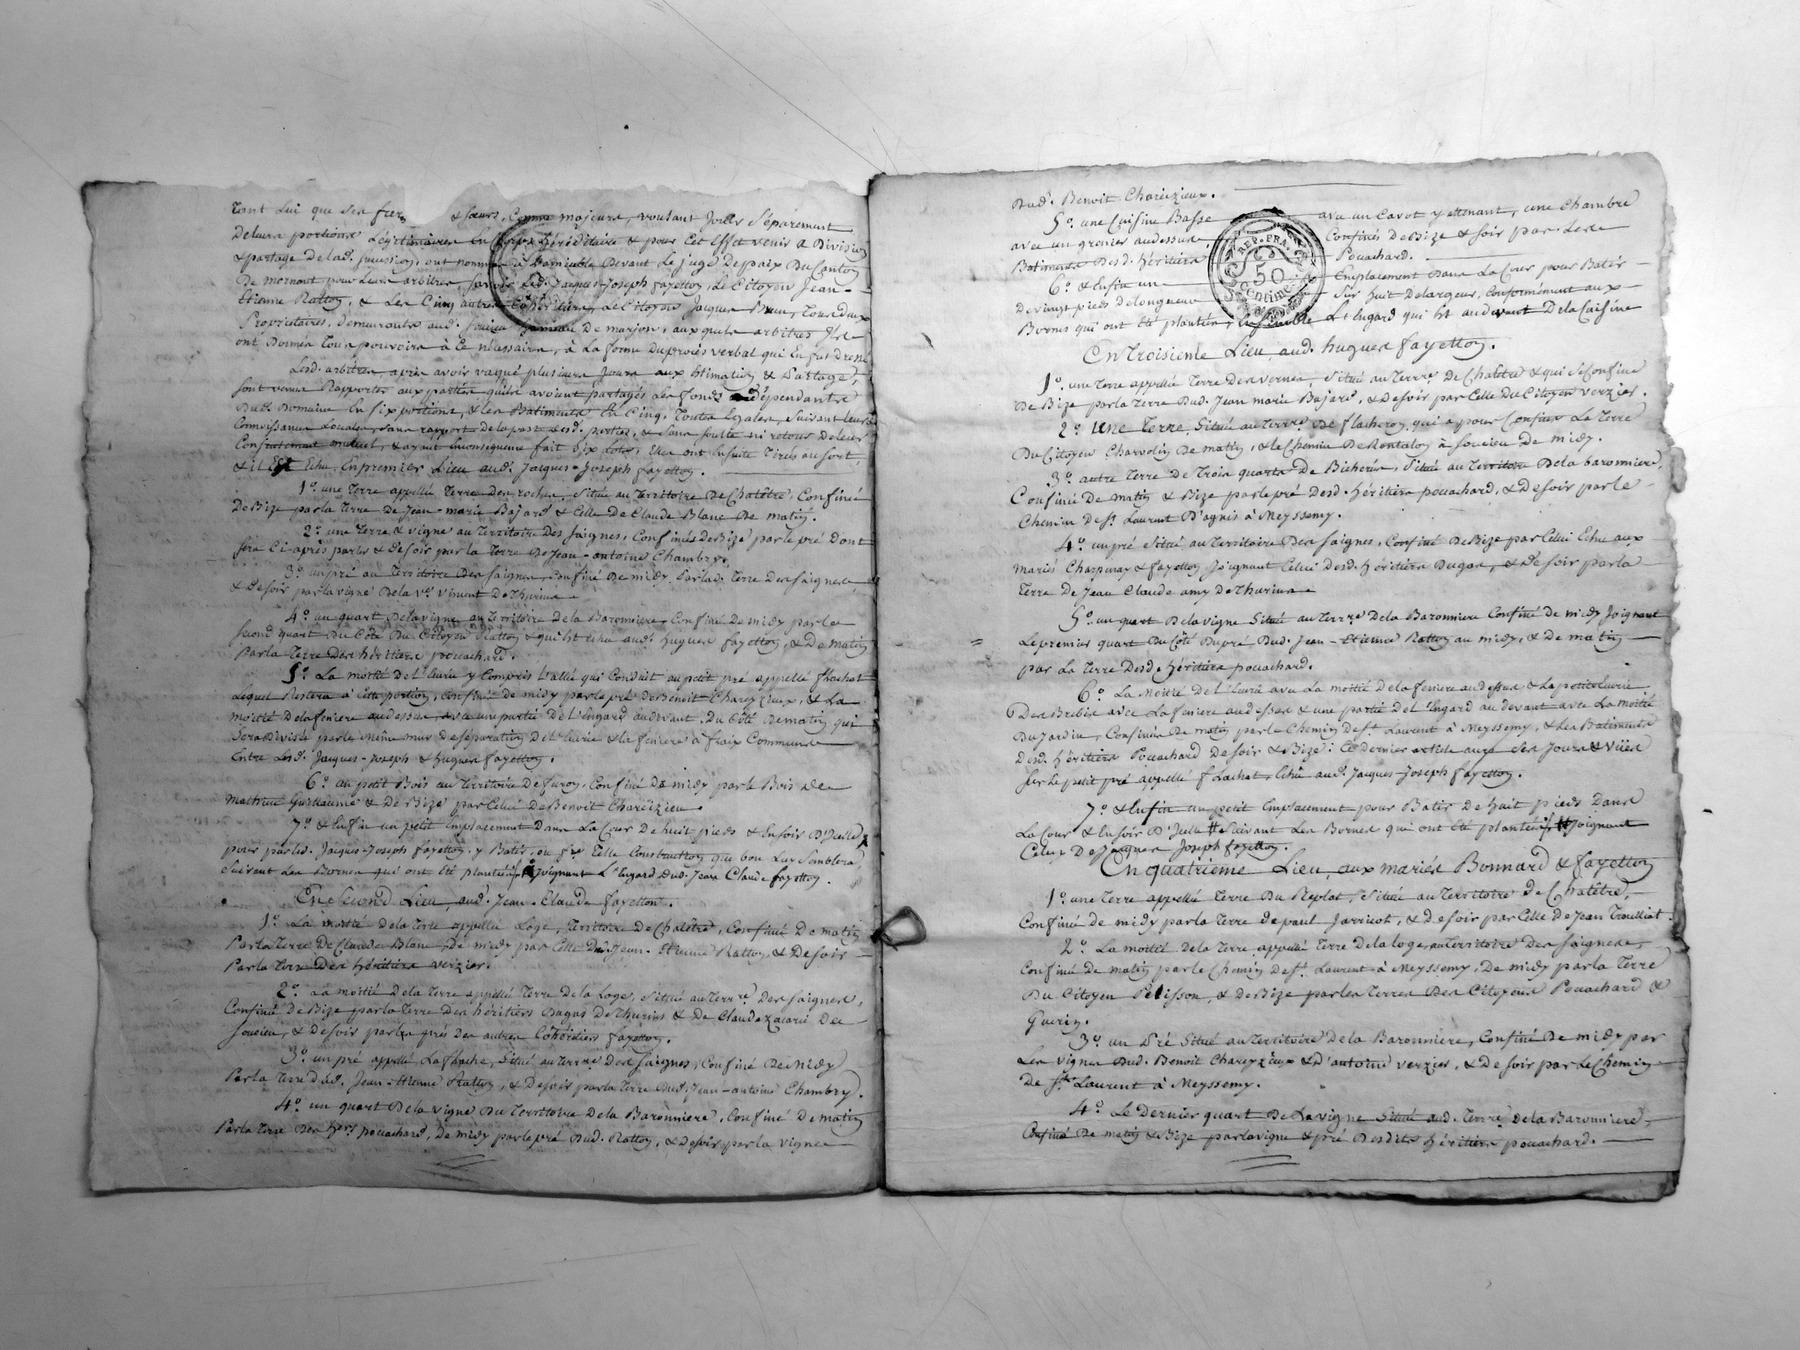 tant lui que ses frer & sœurs, comme majeurs, voulant jouir séparément
de leurs portions légitimaires en corps héréditaire & pour cet effet venir a division
& partage de lad. succession, ont nommé à l'amiable devant le juge de paix du canton
de mornant pour leurs arbitres, savoir led. Jacques-Joseph fayetton, le Citoyen Jean-
Etienne Ratton, & les cinq autres cohéritiers, le Citoyen Jacques Brun, tous deux
Proprietaires, demeurants aud. soucieu hameau de marjon, auxquels arbitres ils
ont donnés tous pouvoirs à ce nécessaires, à la forme du procès verbal qui en fut dressé
Lesd. arbitres, après avoir vaqué plusieurs jours aux Estimation & Partage,
sont venus rapporter aux parties qu'ils avoient partagés les fonds dépendants
dudt. Domaine en six portions, & les Batiments en cinq, toutes égales, suivant leurs
connoissances locales, sans rapport de la part desd. parties, & sans soulte ni retour de leur
consentement mutuel, & ayant en conséquence fait six lots, elles ont ensuite tirés au sort,
& il Est Echu, En premier Lieu aud. Jacques-Joseph fayetton.
1° une terre appellée terre des rochers, située au territoire de Chalêtre, Confinée
de Bize par la terre de Jean-marie Bajard & celle de Claude Blanc de matin.
2° une terre & vigne au territoire des saignes, confinées de Bize par le pré dont
sera ci-après parlés & de soir par la terre de Jean-antoine Chambry.
3° un pré au territoire des saignes, confiné de midy par lad. terre des saignes
& de soir par la vigne de la ve. vincent de thurins
4° un quart de la vigne au territoire de la Baronniere, Confiné de midy par le
second quart du côté du citoyen Ratton & qui est echu aud. hugues fayetton, & de matin
par la terre des héritiers pouachard.
5° La moitié de l'Ecurie y compris l'allée qui conduit au petit pré appellé flachat
lequel restera à cette portion, confiné de midy par le pré de Benoit Chareyzieux, & la
moitié de la feniere au dessus, avec une partie de l'Engard au devant, du côté de matin qui
sera divisée par le même mur de séparation de l'Ecurie & la feniere à fraix communs
Entre lesd. Jacques-Joseph & hugues fayetton.
6° un petit Bois au territoire de furon, Confiné de midy par le Bois de
Mathieu Guillaume & de Bize par celui de Benoit Chareizieu.
7° & Enfin un petit Emplacement dans la cour de huit pieds & Ensoir D'Icelle
pour par led. Jacques-Joseph fayetton y Batir, ou f telle construction que bon lui semblera
suivant les Bornes qui ont été plantées, joignant l'Engard dud. Jean Claude fayetton.
En second Lieu, aud. Jean-Claude fayetton.
1° La moitié de la terre appellée Loge, territoire de Chalêtre, Confiné de matin
Par la terre de Claude Blanc, de midy par celle de Jean-Etienne Ratton, & de soir
Par la terre des héritiers verzier.
2° La moitié de la terre appellée terre de la Loge, située au terrre. des saignes,
Confiné de Bize par la terre des héritiers Dugas de thurins & de Claude zacarie de
soucieu, & de soir par les prés des autres cohéritiers fayetton.
3° un pré appellé La flache, situé au terrre. des saignes, confiné de midy
Par la terre dud. Jean-Etienne Ratton, & de soir par la terre dud. Jean-antoine Chambry.
4° un quart de la vigne du territoire de la Baronniere, confiné de matin
Par la terre des hers. pouachard, de midy par le pré dud. Ratton, & de soir par la vigne
Dud. Benoit Chareizieux.
5° une cuisine Basse avec un cavot y attenant, une chambre
avec un grenier au dessus, confinés de Bize & soir par les
Batiments desd. héritiers Pouachard.
REP. FRA.
50
Centime
6° & Enfin un Emplacement dans la cour pour Batir
de vingt pieds de longueur sur huit de largeur, conformément aux
Bornes qui ont été plantées, Ensemble l'Engard qui est au devant de la cuisine
En troisieme Lieu, aud. hugues fayetton.
1° une terre appellée terre des vernes, située au terrre. de Chalêtre & qui se confine
de Bize par la terre dud. Jean marie Bajard, & de soir par celle du Citoyen verzier.
2° une terre, située au terrre. de flacheron, qui a pour confins la terre
du Citoyen Charvolin de matin, & le chemin de Rontalon à soucieu de midy.
3° autre terre de trois quarts de Bicherée, située au territoire de la baronniere,
Confiné de matin & Bize par le pré desd. héritiers pouachard, & de soir par le
chemin de st. Laurent D'agnis à Meyssemy.
4° un pré situé au territoire des saignes, Confiné de Bize par celui Echu aux
Mariés Charpenay & fayetton joignant celui desd. héritiers Dugas, & de soir par la
terre de Jean Claude amy de thurins
5° un quart de la vigne situé au terrre. de la Baronniere confiné de midy joignant
le premier quart du côté du pré dud. Jean-Etienne Ratton au midy, & de matin
par la terre desd. héritiers pouachard.
6° La moitié de l'Ecurie avec la moitié de la feniere au dessus, & la petite Ecurie
des Brebis avec la feniere au dessus & une partie de l'Engard au devant avec la moitié
du jardin, Confinées de matin par le chemin de st. Laurent à Meyssemy, & les Batiments
desd. héritiers Pouachard de soir & Bize: ce dernier article aura ses jours & vües
sur le petit pré appellé flachat, Echu aud. Jacques-Joseph fayetton.
7° & Enfin un petit Emplacement pour Batir de huit pieds dans
la cour & Ensoir D'Icelle suivant les Bornes qui ont été plantées, joignant
celui de Jacques Joseph fayetton.
En quatrieme Lieu, aux mariés Bonnard & fayetton
1° une terre appellée terre du Replat, située au territoire de Chalêtre,
Confiné de midy par la terre de paul Jarricot, & de soir par celle de Jean Trouilliat.
2° La moitié de la terre appellée terre de la loge, au territoire des saignes,
confiné de matin par le chemin de st. Laurent à Meyssemy, de midy par la terre
du Citoyen Pelisson, & de Bize par les terres des Citoyens Pouachard &
Guerin.
3° un Pré situé au territoire de la Baronniere, confiné de midy par
les vignes dud. Benoit Chareyzieux & d'antoine verzier, & de soir par le chemin
de st. Laurent à Meyssemy.
4° Le dernier quart de la vigne située aud. terre. de la Baronniere,
Confiné de matin & Bize par la vigne & pré desdits héritiers pouachard.